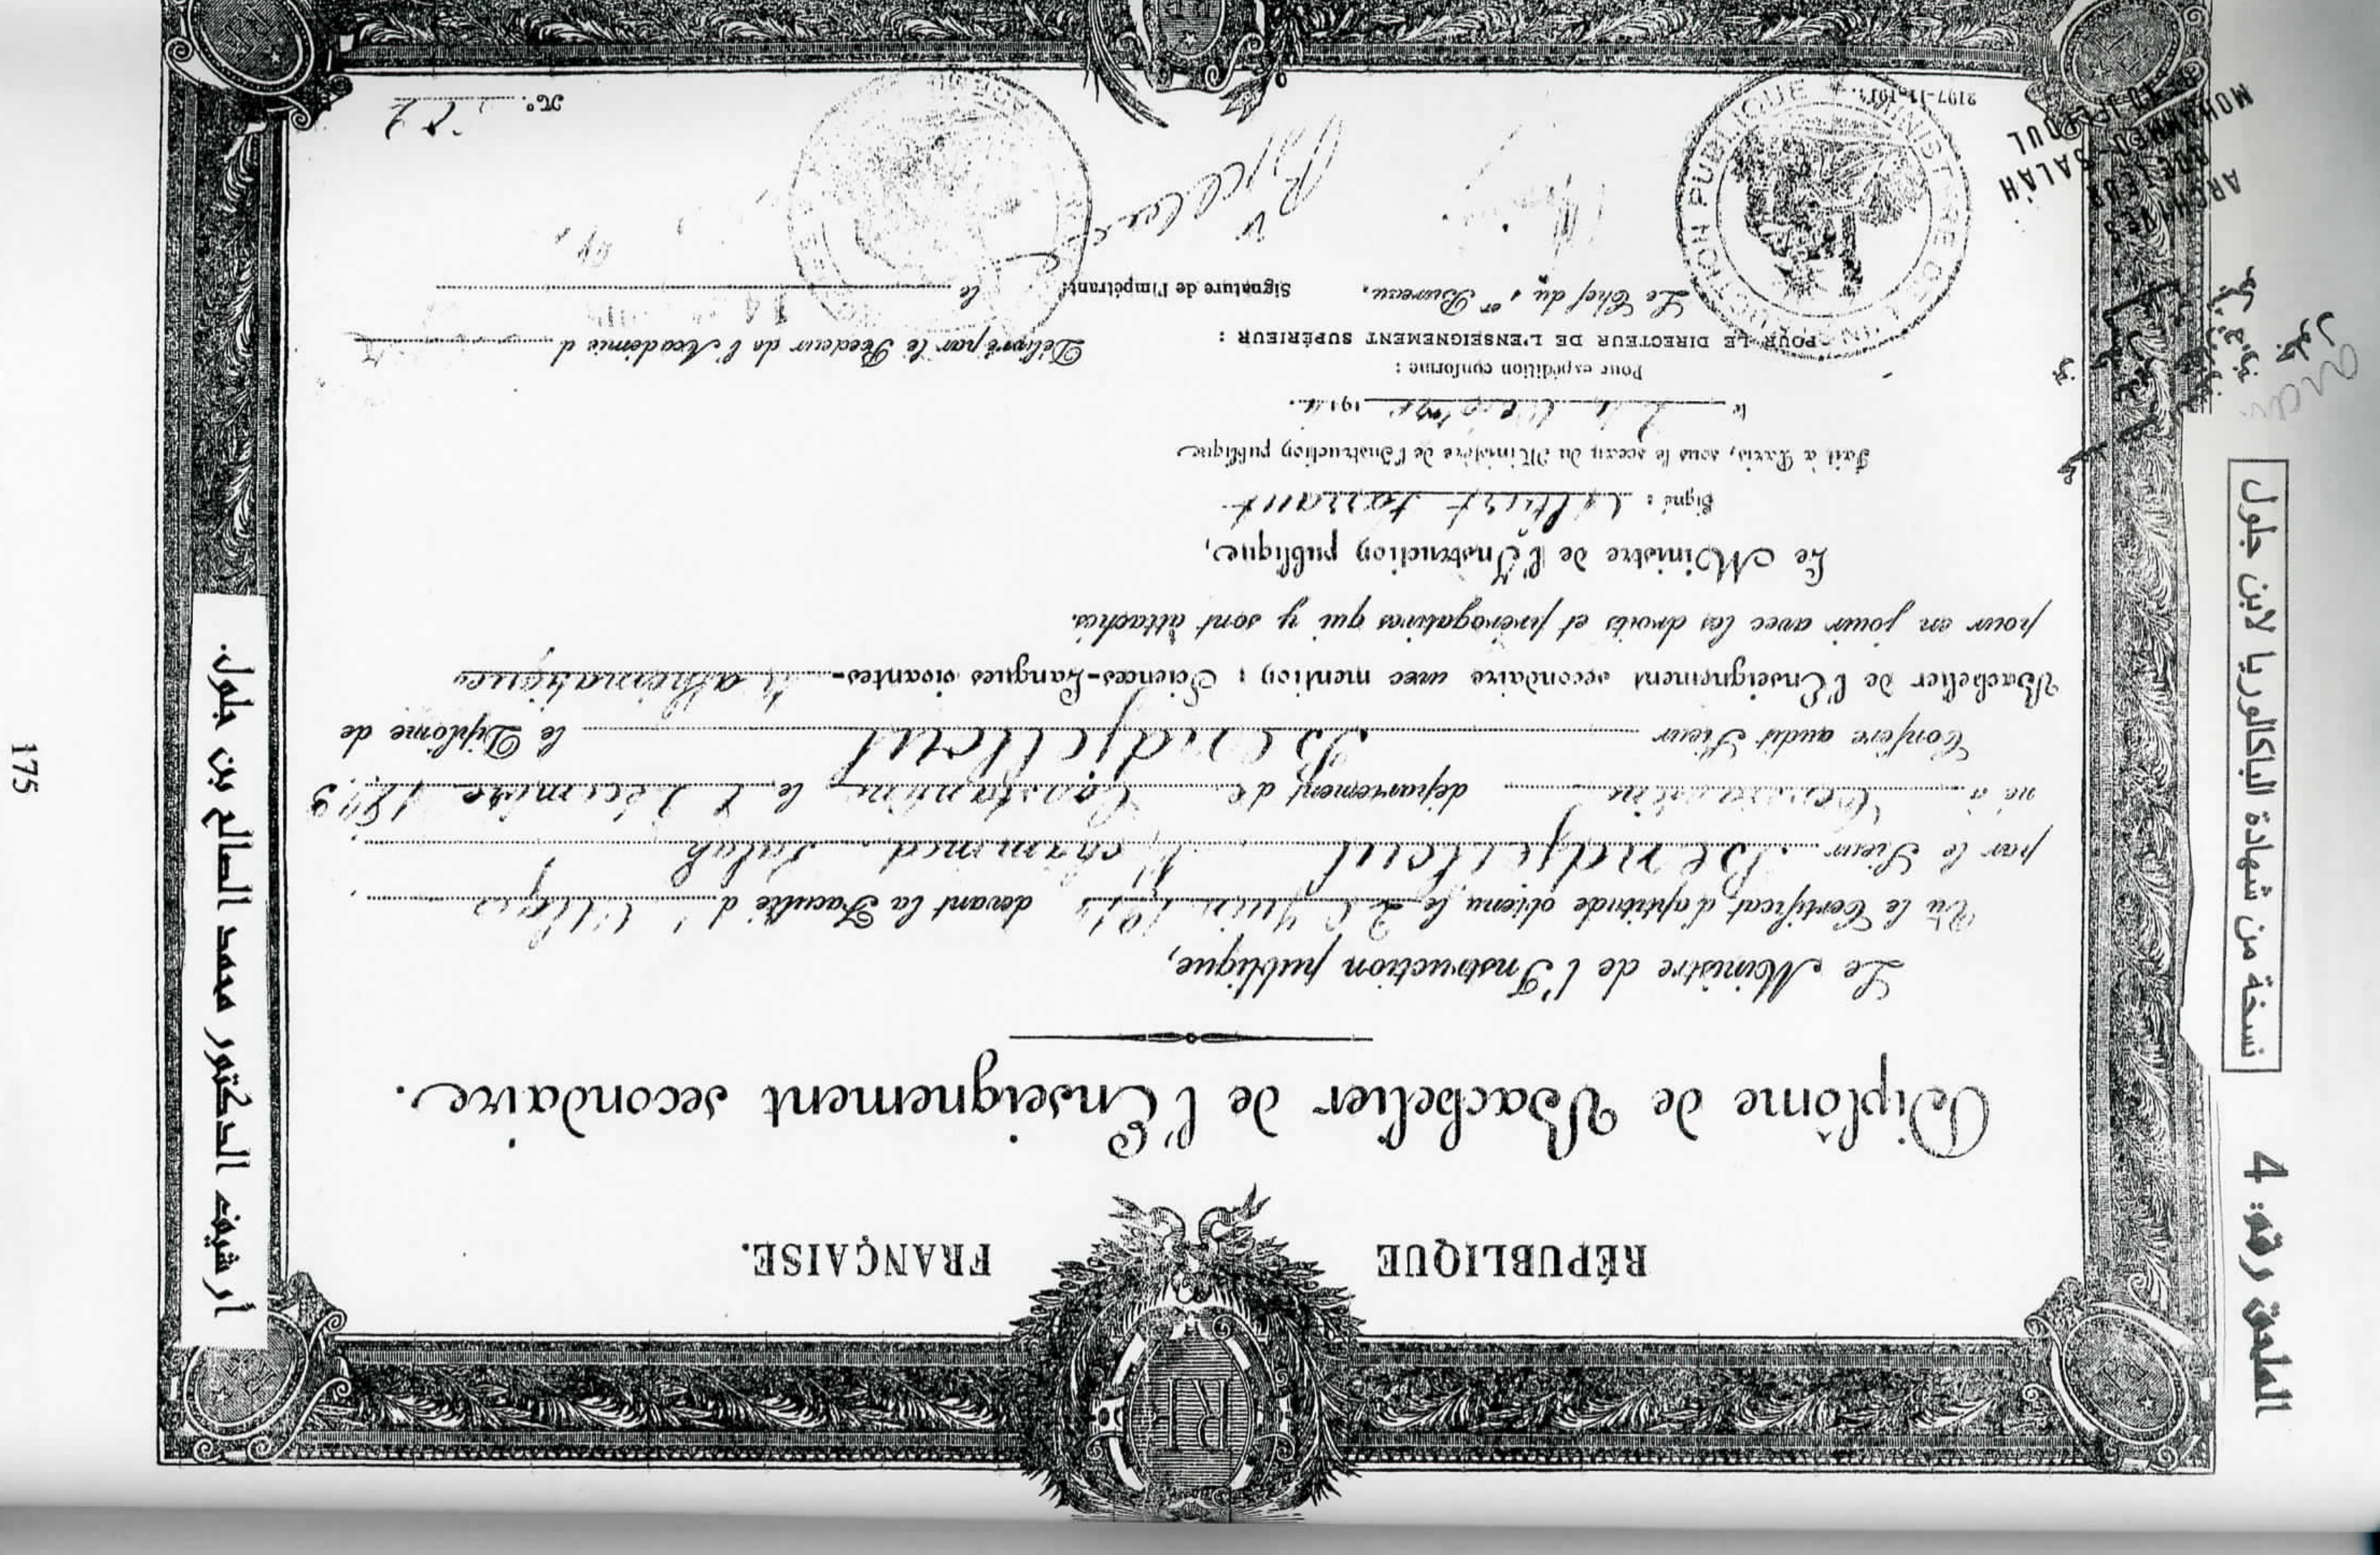 الملحق رقم: 4
نسخة من شهادة البكالوريا لابن جلول
RÉPUBLIQUE FRANÇAISE.
RF
Diplôme de Bachelier de l'Enseignement secondaire.
Le Ministre de l'Instruction publique,
Vu le Certificat d'aptitude obtenu le Juin devant la Faculté d'Alger
par le Sieur Bendjelloul Mohammed Salah
né à Constantine département de Constantine le 8 Décembre 1893
Confère audit Sieur Bendjelloul le Diplôme de
Bachelier de l'Enseignement secondaire avec mention : Sciences-Langues vivantes- Mathématiques
pour en jouir avec les droits et prérogatives qui y sont attachés.
Le Ministre de l'Instruction publique,
Signé : Albert Sarraut
Fait à Paris, sous le sceau du Ministère de l'Instruction publique
le 191
Pour expédition conforme :
POUR LE DIRECTEUR DE L'ENSEIGNEMENT SUPÉRIEUR :
Le Chef du 1er Bureau,
Signature de l'impétrant:
Délivré par le Recteur de l'Académie d
le
N°
MINISTRE DE L'INSTRUCTION PUBLIQUE
ARCHIVES
DOCTEUR
MOHAMMED-SALAH
BENDJELLOUL
أرشيف الدكتور محمد الصالح بن جلول.
175